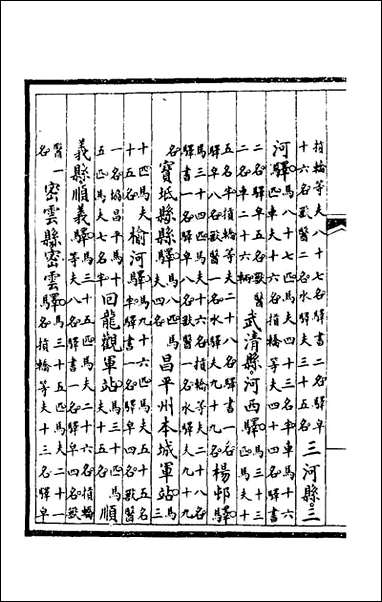 損轎等夫八十七名驛書二名驛皁十六名獸醫二名水驛夫三十五名三河縣。三
河驛馬八十七匹馬夫四十三名半車馬十六匹車夫十六名損轎等夫四十四名驛書
二名驛皁五名獸醫二名車二十六輛武清縣。河西驛馬三十三匹馬夫十
五名半損轎等夫二十八名驛書一名驛皁八名獸醫一名水驛夫九十九名楊邨驛
馬三十四匹馬夫十六名損轎等夫二十八名驛書一名驛皁八名獸醫一名水驛夫九十九
名寶坻縣縣驛馬八匹馬夫四名昌平州本城軍站馬三
十匹馬夫十五名榆河驛馬九十六匹馬夫五十五名損轎夫十五名驛皁四名獸醫
一名協昌平馬十五匹馬夫七名半回龍觀軍站馬三十匹馬夫十五名順
義縣順義驛馬三十五匹馬夫二十六名損轎等夫三十八名驛書一名驛皁四名獸
醫一名密雲縣密雲驛馬三十五匹馬夫二十一名損轎等夫十三名驛皁